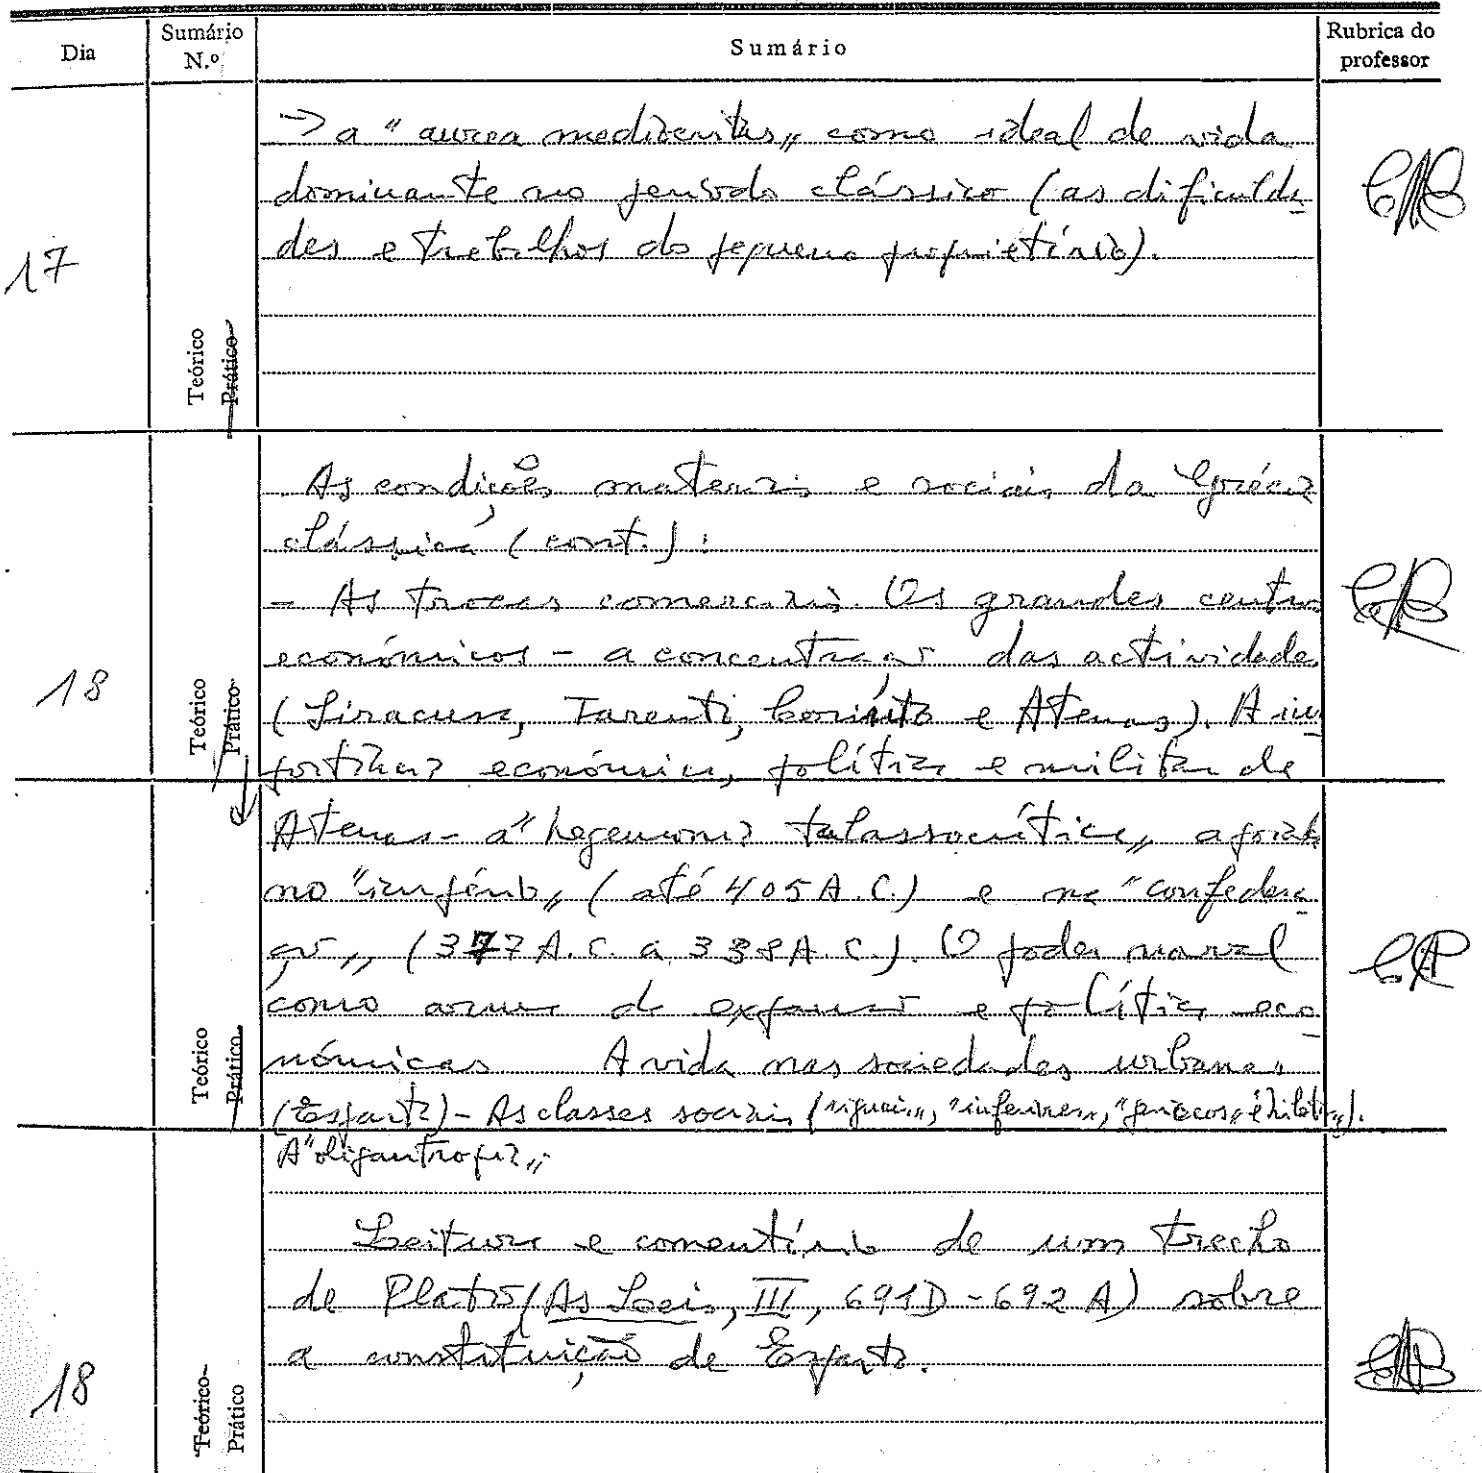 Dia
Sumário N.º
Sumário
Rubrica do professor
17
Teórico
Prático
→ a "aurea mediocritas" como ideal de vida
dominante no período clássico (as dificulda-
des e trabalhos do pequeno proprietário).
18
Teórico
Prático
As condições materiais e sociais da Grécia
clássica (cont.):
- As trocas comerciais. Os grandes centros
económicos - a concentração das actividades
(Siracusa, Tarento, Corinto e Atenas). A im-
portância económica, política e militar de
Teórico
Prático
Atenas - a "hegemonia talassocrática" apoiada
no "império" (até 405 A.C.) e na "confedera-
ção" (377 A.C. a 338 A.C.). O poder naval
como arma de expansão e política eco-
nómicas A vida nas sociedades urbanas
(Esparta) - As classes sociais ("iguais", "inferiores", "periecos" e hilotas).
A "oligantropia"
18
Teórico
Prático
Leitura e comentário de um trecho
de Platão (As Leis, III, 691D - 692 A) sobre
a constituição de Esparta.